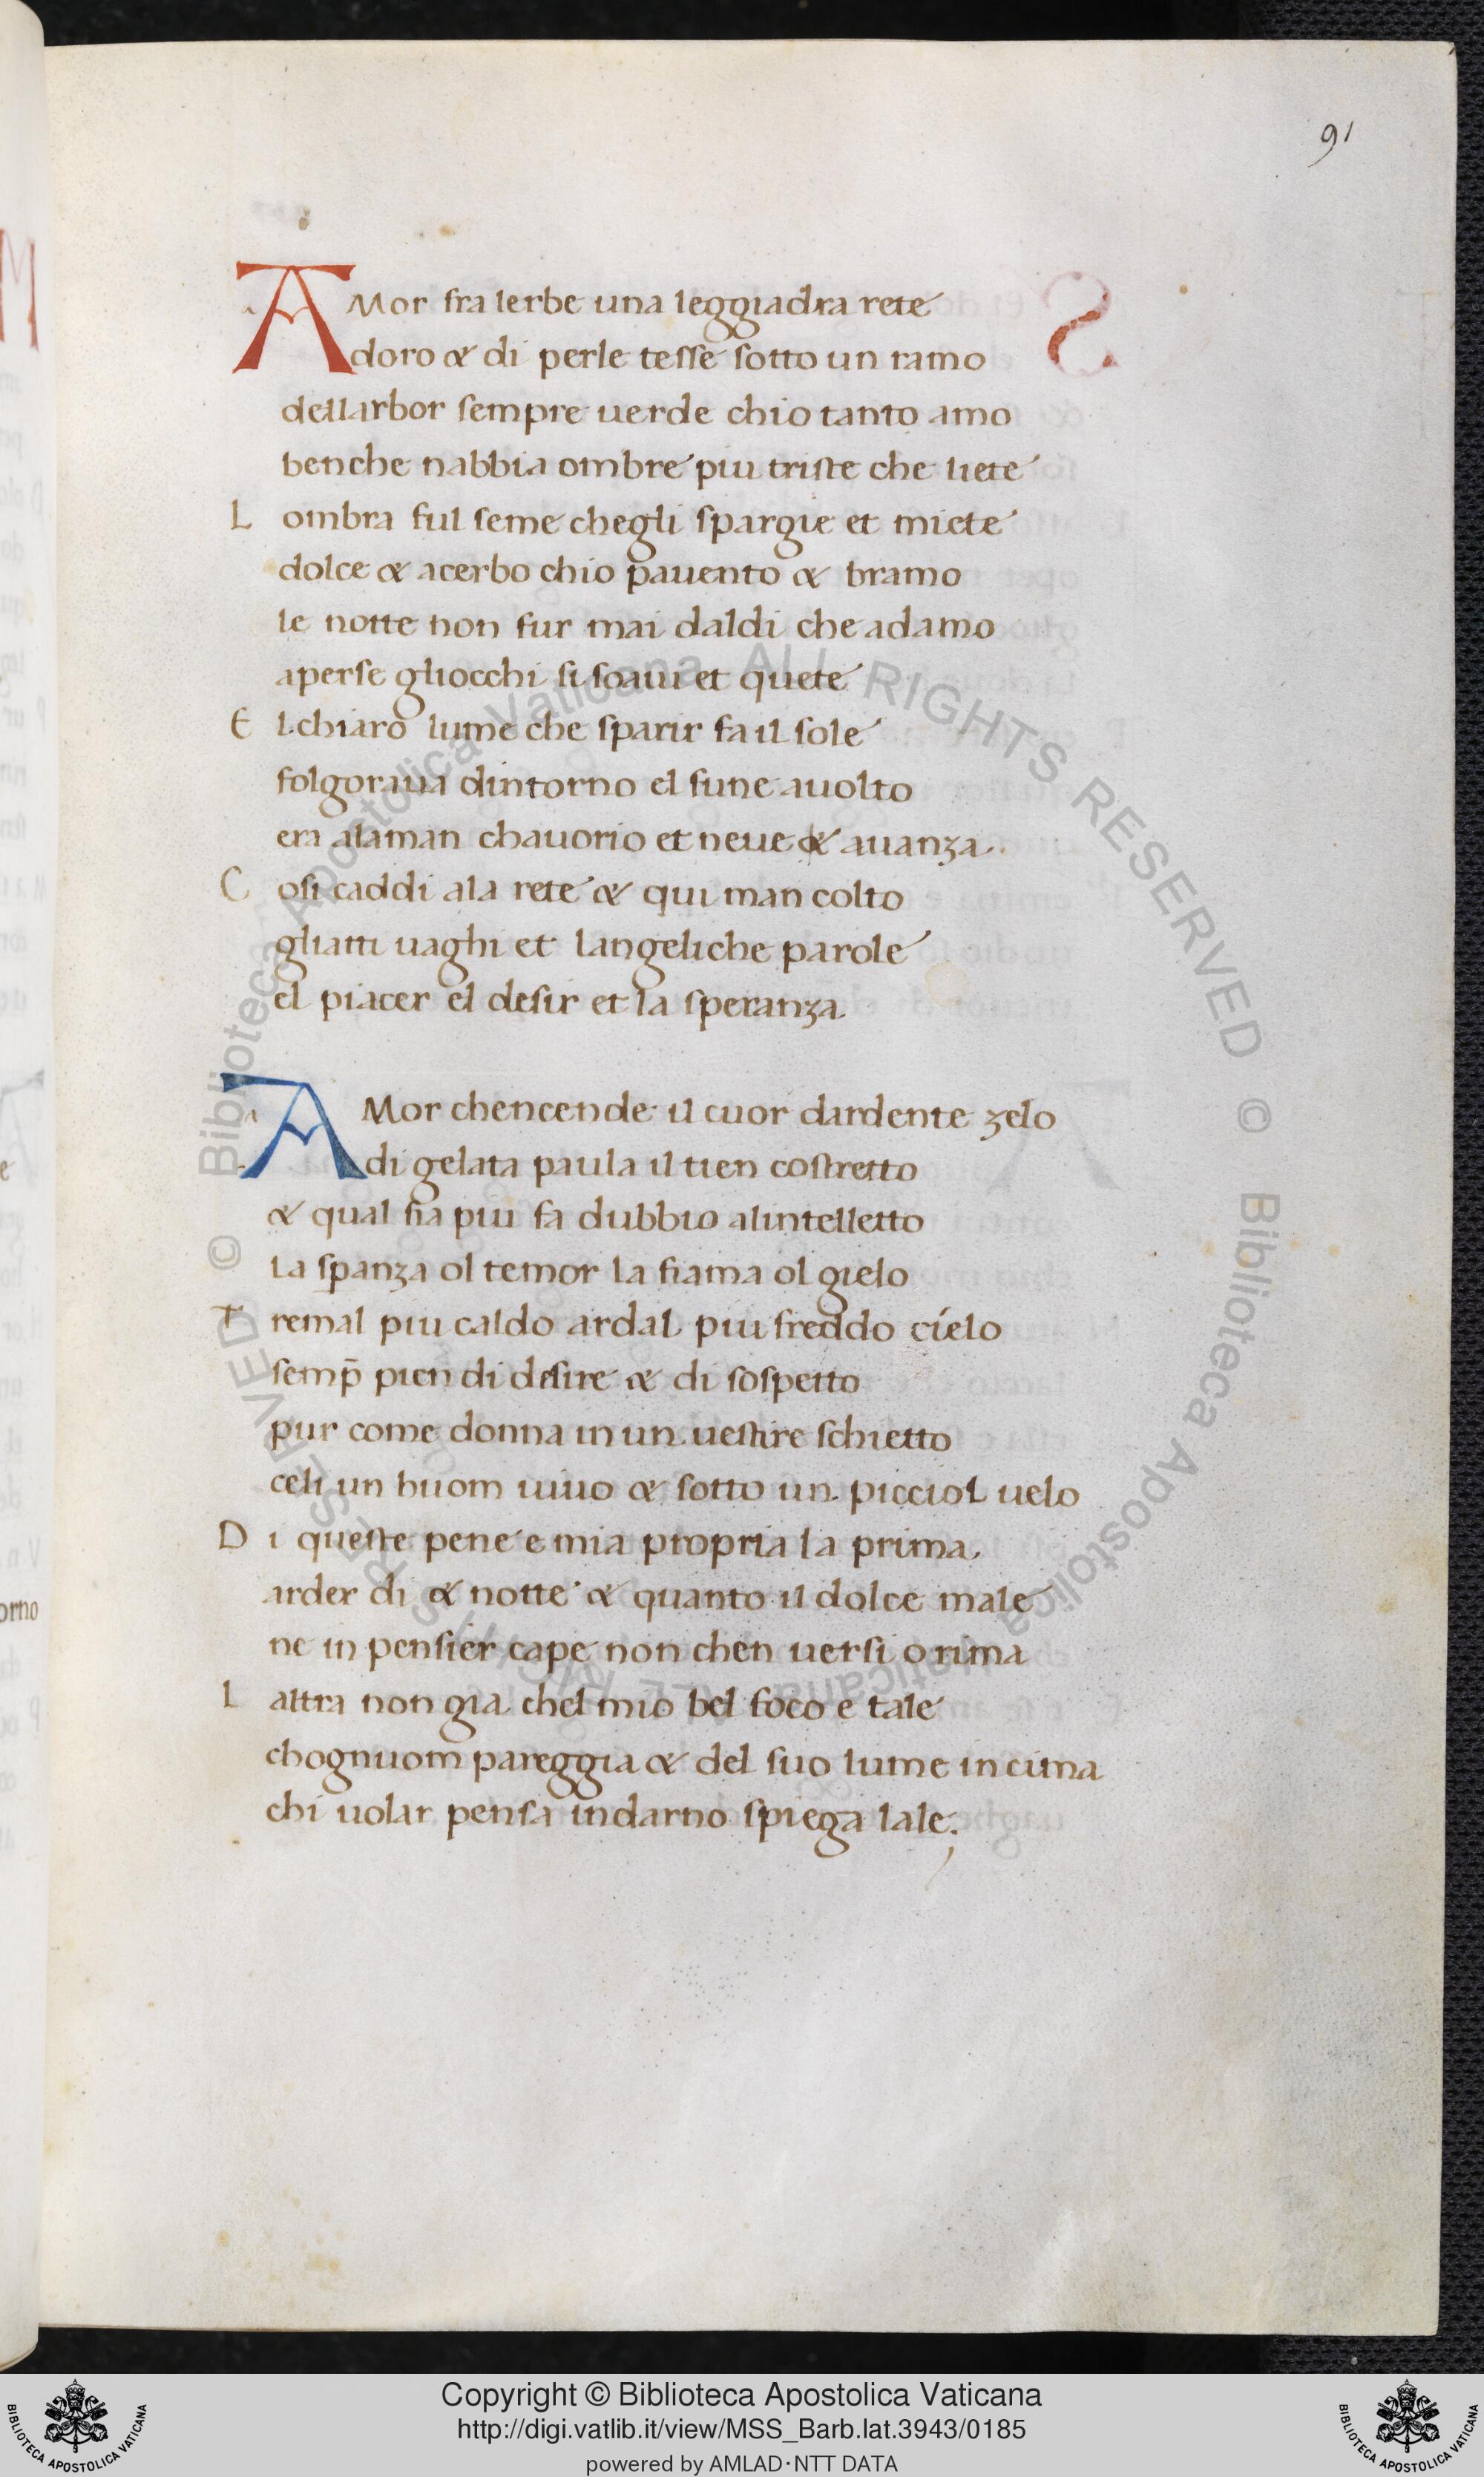 91
AMor fra lerbe una leggiadra rete
doro & di perle tesse sotto un ramo
dellarbor sempre uerde chio tanto amo
benche nabbia ombre piu triste che liete
L ombra ful seme chegli spargie et miete
dolce & acerbo chio pauento & bramo
le notte non fur mai daldi che adamo
aperse gliocchi si soaui et quete
E l chiaro lume che sparir fa il sole
folgoraua dintorno el fune auolto
era alaman chauorio et neue & auanza
C osi caddi ala rete & qui man colto
gliatti uaghi et langeliche parole
el piacer el desir et la speranza
AMor chencende il cuor dardente zelo
di gelata paula il tien costretto
& qual sia piu fa dubbio alintelletto
la spanza ol temor la fiama ol gielo
T remal piu caldo ardal piu freddo cielo
semp̄ pien di desire & di sospetto
pur come donna in un uestire schietto
celi un huom uiuo & sotto un picciol uelo
D i queste pene e mia propria la prima
arder di & notte & quanto il dolce male
ne in pensier cape non chen uersi o rima
L altra non gia chel mio bel foco e tale
chognuom pareggia & del suo lume in cima
chi uolar pensa indarno spiega lale.
orno
© Biblioteca Apostolica Vaticana ALL RIGHTS RESERVED
© Biblioteca Apostolica Vaticana ALL RIGHTS RESERVED
Copyright © Biblioteca Apostolica Vaticana
http://digi.vatlib.it/view/MSS_Barb.lat.3943/0185
powered by AMLAD·NTT DATA
BIBLIOTECA APOSTOLICA VATICANA
BIBLIOTECA APOSTOLICA VATICANA